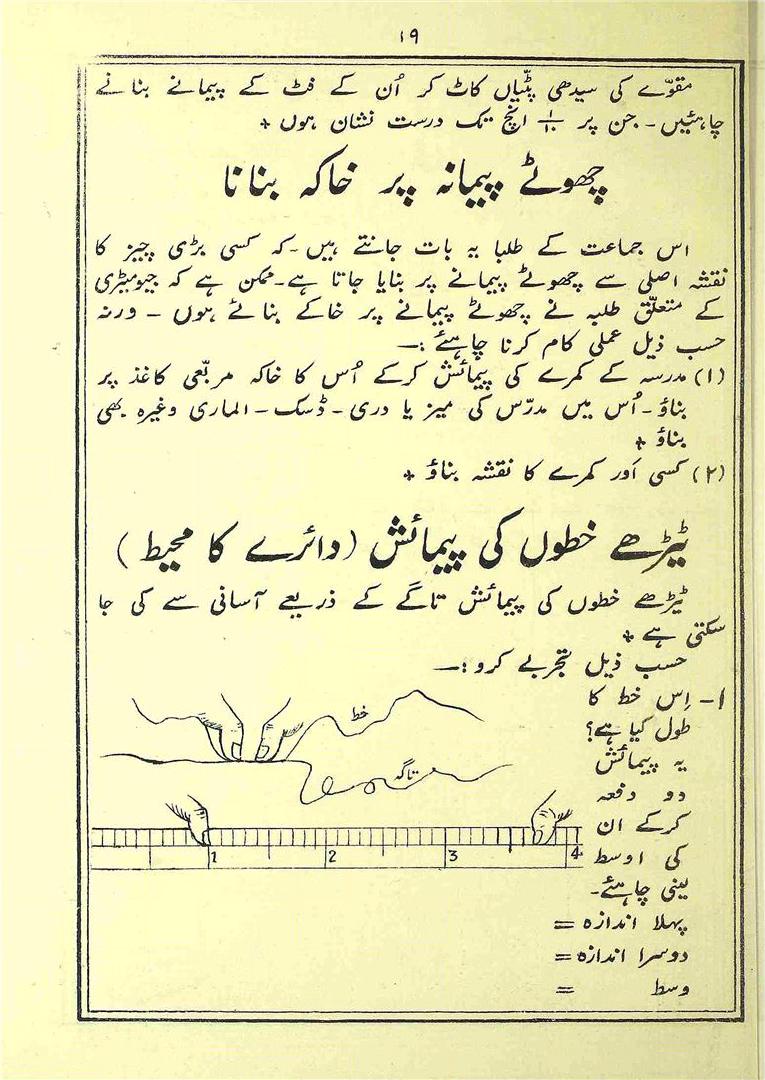 ۱۹
مقوّے کی سیدھی پٹّیاں کاٹ کر اُن کے فٹ کے پیمانے بنانے
چاہئیں۔ جن پر ۱/۱۰ انچ تک درست نشان ہوں +
چھوٹے پیمانہ پر خاکہ بنانا
اس جماعت کے طلبا یہ بات جانتے ہیں۔ کہ کسی بڑی چیز کا
نقشہ اصلی سے چھوٹے پیمانے پر بنایا جاتا ہے۔ ممکن ہے کہ جیومیٹری
کے متعلّق طلبہ نے چھوٹے پیمانے پر خاکے بنائے ہوں ۔ ورنہ
حسب ذیل عملی کام کرنا چاہئے :—
(۱) مدرسہ کے کمرے کی پیمائش کرکے اُس کا خاکہ مربّعی کاغذ پر
بناؤ۔ اُس میں مدرّس کی میز یا دری۔ ڈسک۔ الماری وغیرہ بھی
بناؤ +
(۲) کسی اَور کمرے کا نقشہ بناؤ +
ٹیڑھے خطوں کی پیمائش (دائرے کا محیط)
ٹیڑھے خطوں کی پیمائش تاگے کے ذریعے آسانی سے کی جا
سکتی ہے +
حسب ذیل تجربے کرو :—
۱۔ اِس خط کا
طول کیا ہے؟
یہ پیمائش
دو دفعہ
کرکے ان
کی اوسط
لینی چاہئے۔
پہلا اندازہ =
دوسرا اندازہ =
وسط =
خط
تاگہ
1 2 3 4